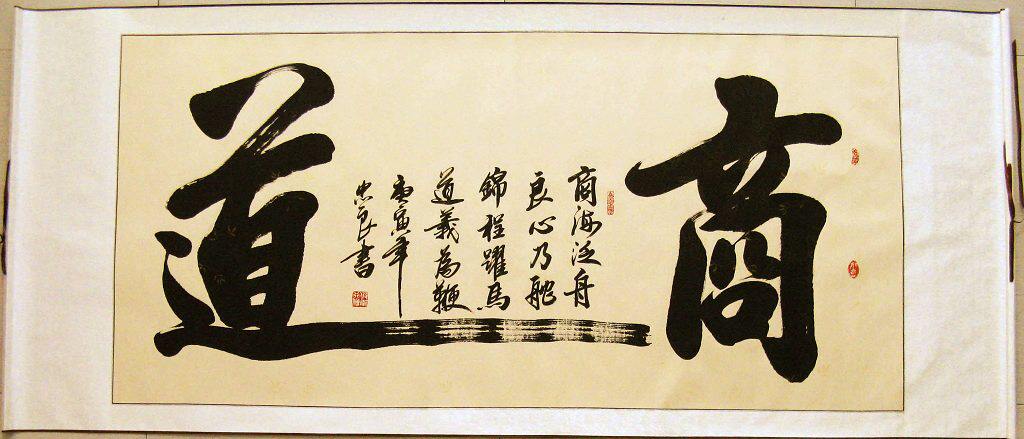 商道
商海泛舟
良心乃舵
錦程躍馬
道義為鞭
庚寅年
忠良書